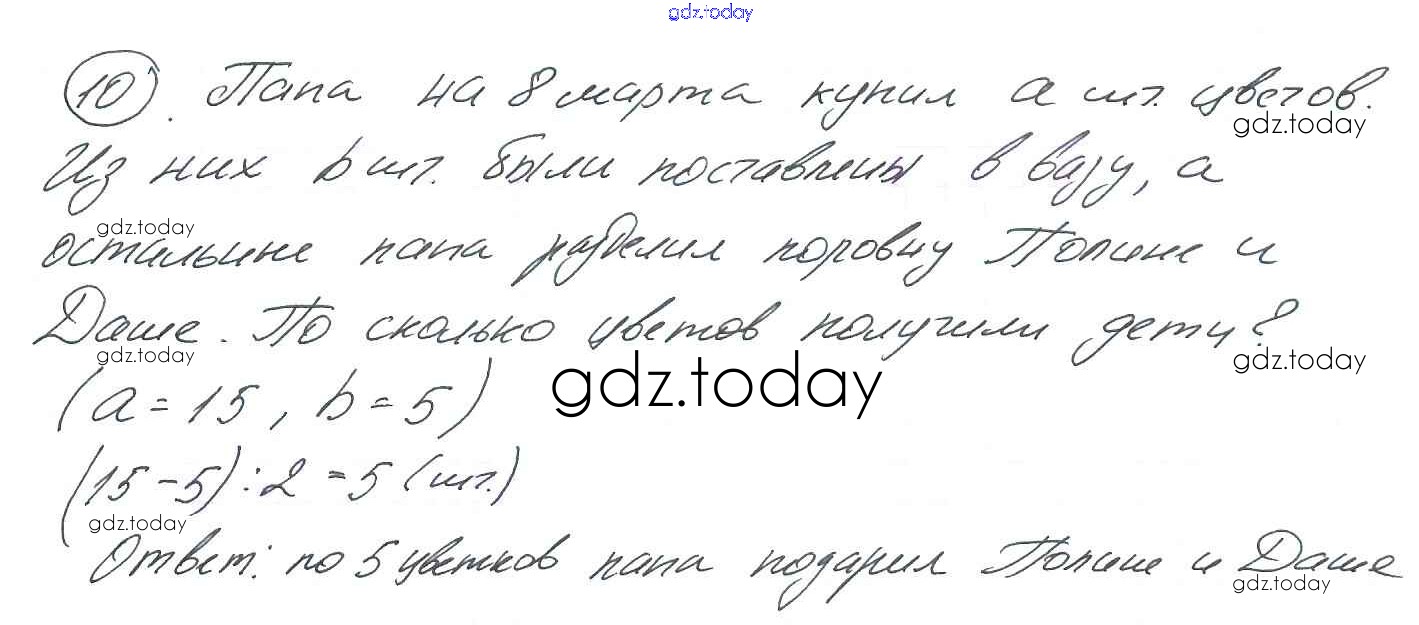 gdz.today
10. Папа на 8 марта купил a шт. цветов.
gdz.today
Из них b шт. были поставлены в вазу, а
gdz.today
остальные папа разделил поровну Полине и
Даше. По сколько цветов получили дети?
gdz.today
gdz.today
gdz.today
(a = 15, b = 5)
(15 - 5) : 2 = 5 (шт.)
gdz.today
Ответ: по 5 цветков папа подарил Полине и Даше
gdz.today